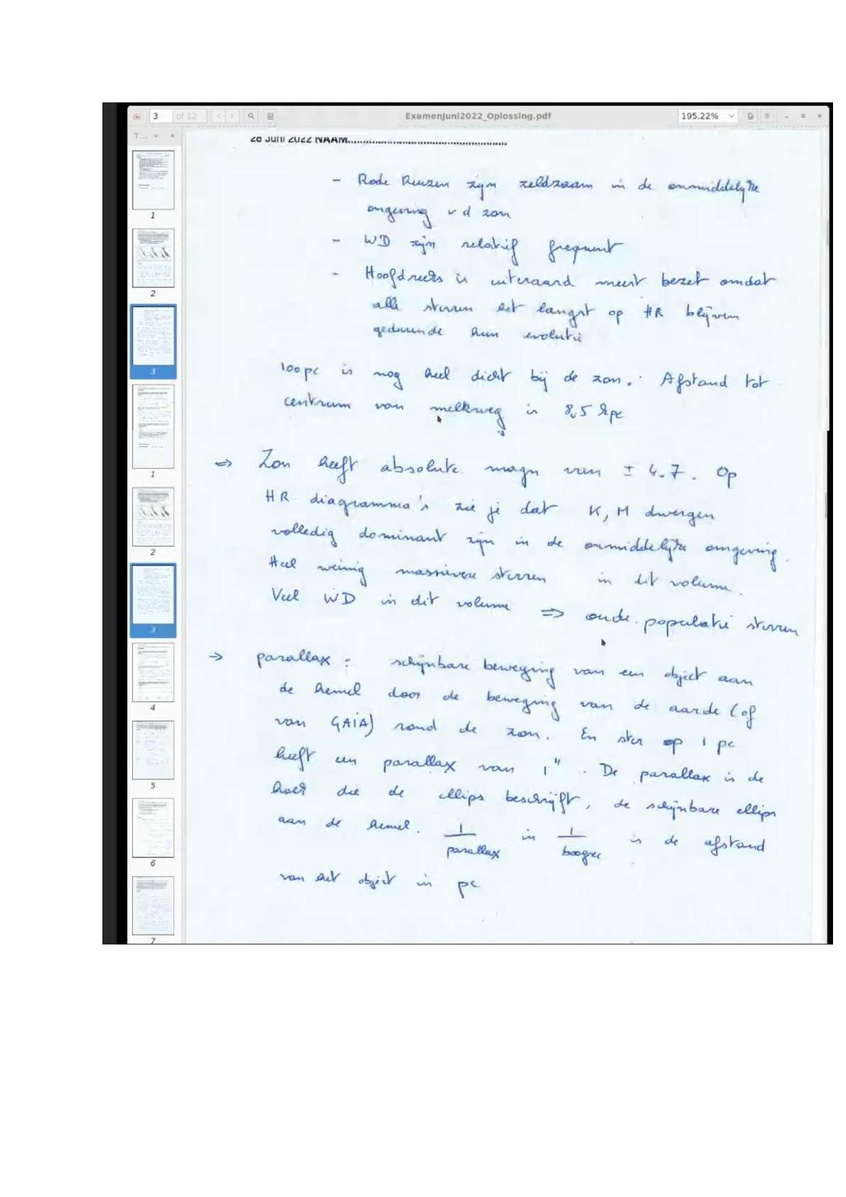 3 of 12
ExamenJuni2022_Oplossing.pdf
195.22%
T...
28 Juni 2022 NAAM
- Rode Reuzen zijn zeldzaam in de onmiddelijke
omgeving v d zon
- WD zijn relatief frequent
- Hoofdreeks is uiteraard meest bezet omdat
alle sterren het langst op HR blijven
gedurende hun evolutie
100pc is nog heel dicht bij de zon. Afstand tot
centrum van melkweg is 8,5 kpc
⇒ Zon heeft absolute magn van ± 4.7. Op
HR diagramma's zie je dat K, M dwergen
volledig dominant zijn in de onmiddelijke omgeving.
Heel weinig massievere sterren in dit volume.
Veel WD in dit volume ⇒ oude populatie sterren
→ parallax : schijnbare beweging van een object aan
de hemel door de beweging van de aarde (of
van GAIA) rond de zon. En ster op 1 pc
heeft een parallax van 1". De parallax is de
hoek die de ellips beschrijft, de schijnbare ellips
aan de hemel. 1/parallax in 1/boogsec is de afstand
van het object in pc
1
2
3
1
2
3
4
5
6
7